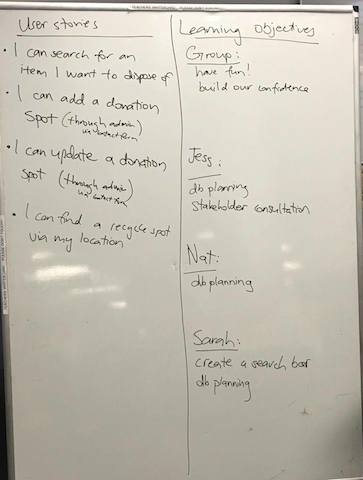 User stories
• I can search for an
item I want to dispose of
• I can add a donation
spot (through admin
via contact form)
• I can update a donation
spot (through admin
via contact form)
• I can find a recycle spot
via my location
Learning objectives
Group:
have fun!
build our confidence
Jess:
db planning
Stakeholder consultation
Nat:
db planning
Sarah:
create a search bar
db planning